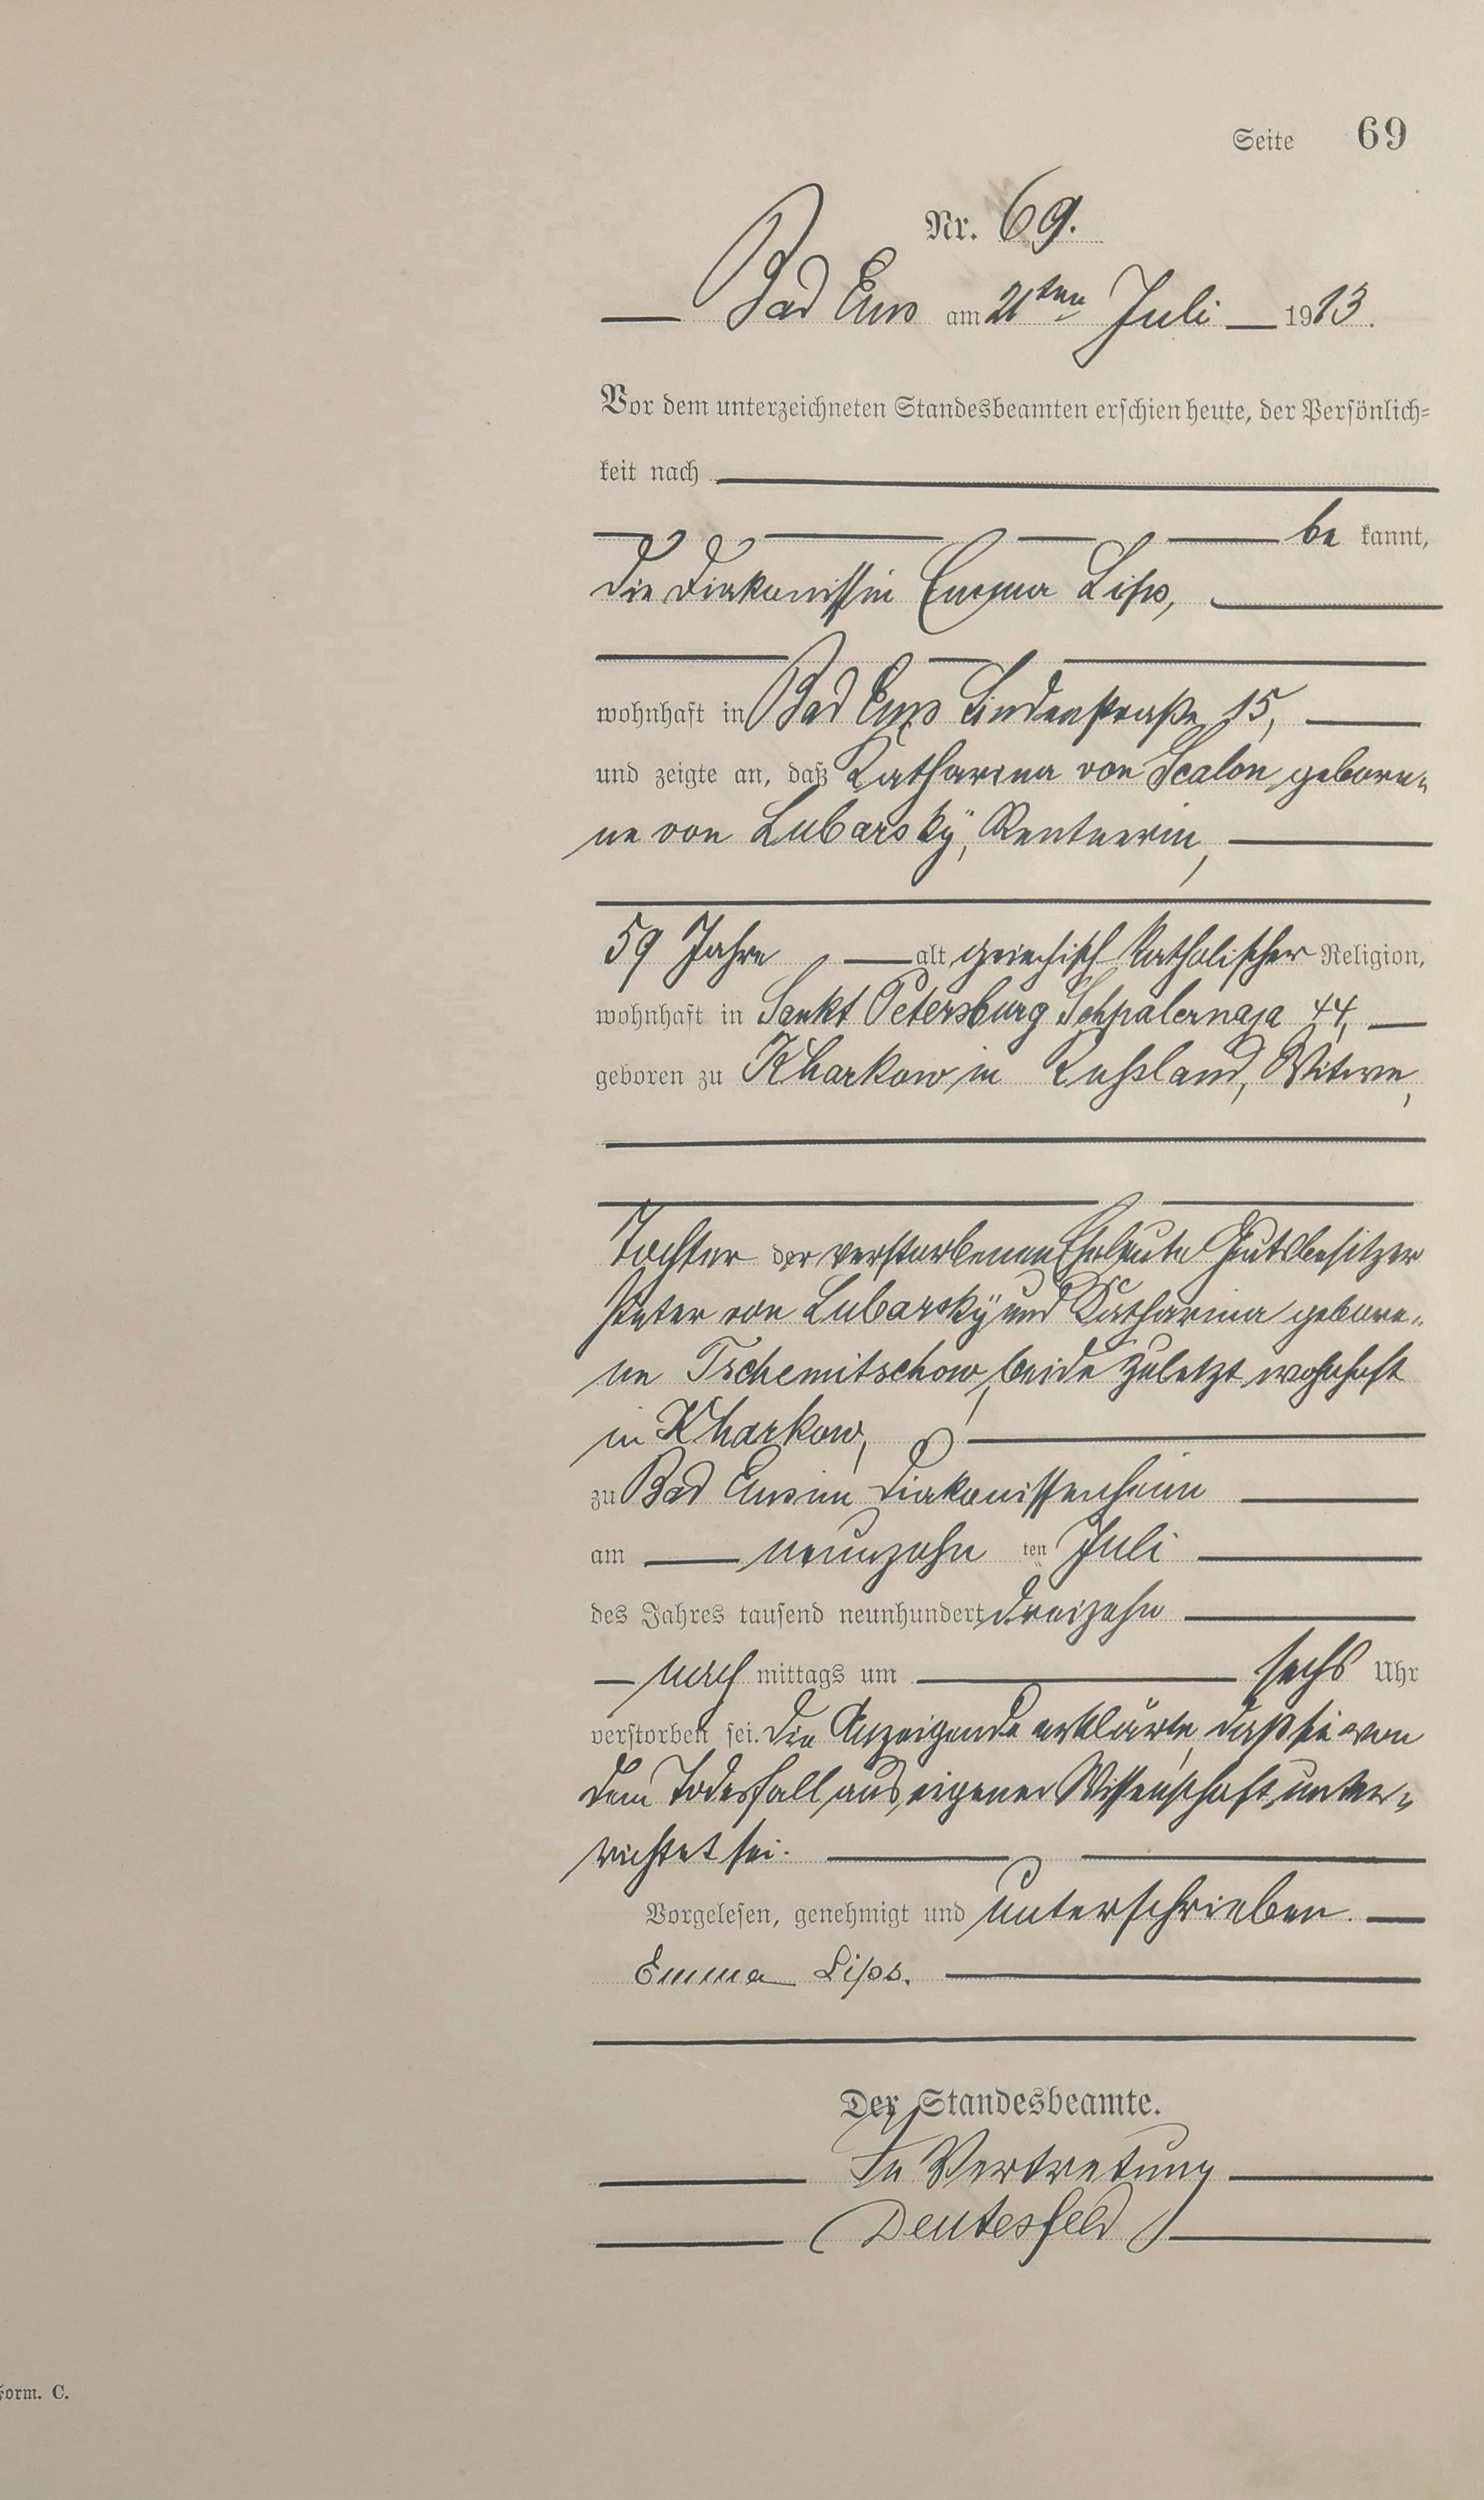 Seite 69
Nr. 69.
Bad Ems am 21ten Juli 1913.
Vor dem unterzeichneten Standesbeamten erschien heute, der Persönlich-
keit nach
be kannt,
die Diakonissin Emma Lips,
wohnhaft in Bad Ems Lindenstraße 15,
und zeigte an, daß Katharina von Scalon gebore-
ne von Lubarsky, Rentnerin,
59 Jahre alt, griechisch katholischer Religion,
wohnhaft in Sankt Petersburg Schpalernaja 44,
geboren zu Kharkow in Russland, Witwe,
Tochter der verstorbenen Eheleute Gutsbesitzer
Peter von Lubarsky und Katharina gebore-
ne Tschemitschow, beide zuletzt wohnhaft
in Kharkow,
zu Bad Ems im Diakonissenheim
am neunzehn ten Juli
des Jahres tausend neunhundert dreizehn
nach mittags um sechs Uhr
verstorben sei. Die Anzeigende erklärte, daß sie von
dem Todesfall aus eigener Wissenschaft unter-
richtet sei.
Vorgelesen, genehmigt und unterschrieben.
Emma Lips.
Der Standesbeamte.
In Vertretung
Deutesfeld
Form. C.